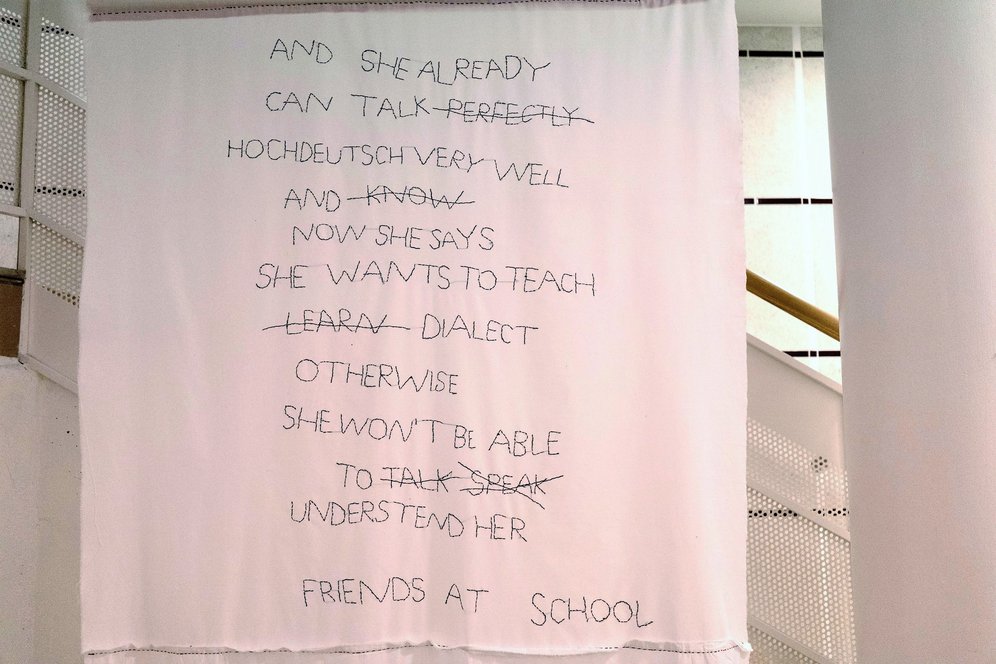 AND SHE ALREADY
CAN TALK PERFECTLY
HOCHDEUTSCH VERY WELL
AND KNOW
NOW SHE SAYS
SHE WANTS TO TEACH
LEARN DIALECT
OTHERWISE
SHE WON'T BE ABLE
TO TALK SPEAK
UNDERSTEND HER
FRIENDS AT SCHOOL